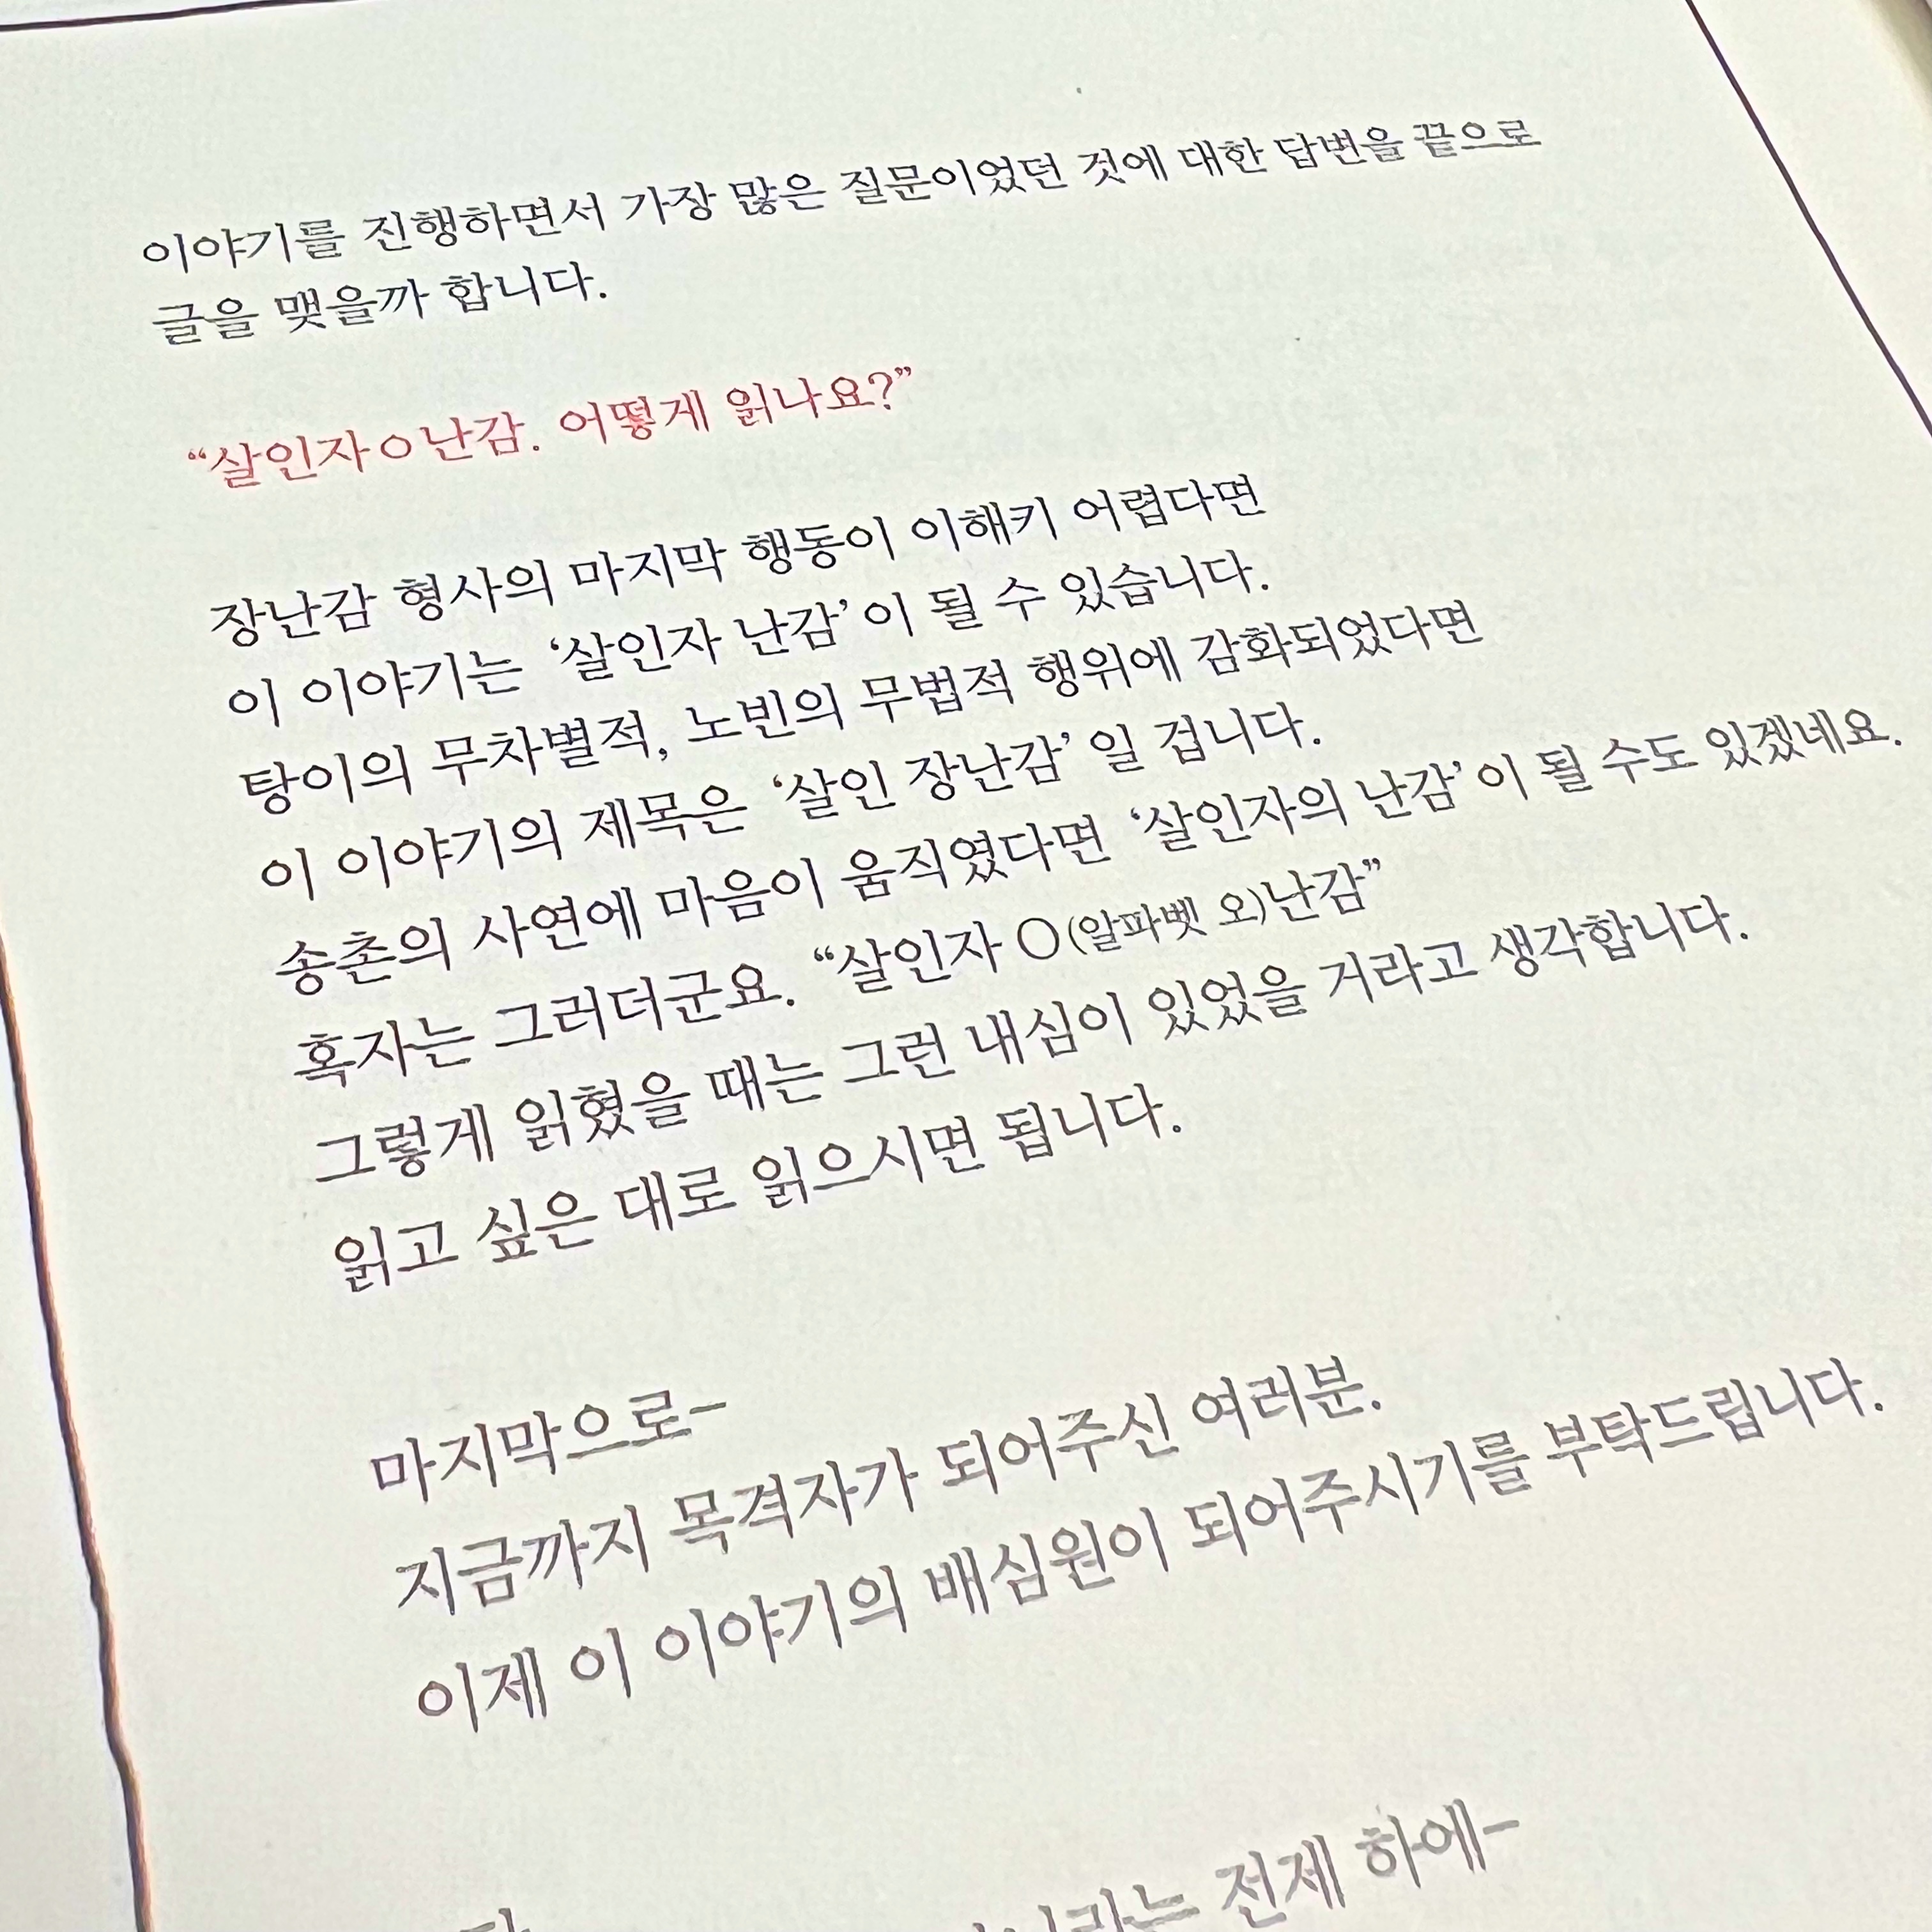 이야기를 진행하면서 가장 많은 질문이었던 것에 대한 답변을 끝으로
글을 맺을까 합니다.
“살인자ㅇ난감. 어떻게 읽나요?”
장난감 형사의 마지막 행동이 이해키 어렵다면
이 이야기는 ‘살인자 난감’이 될 수 있습니다.
탕이의 무차별적, 노빈의 무법적 행위에 감화되었다면
이 이야기의 제목은 ‘살인 장난감’일 겁니다.
송촌의 사연에 마음이 움직였다면 ‘살인자의 난감’이 될 수도 있겠네요.
혹자는 그러더군요. “살인자 O(알파벳 오)난감”
그렇게 읽혔을 때는 그런 내심이 있었을 거라고 생각합니다.
읽고 싶은 대로 읽으시면 됩니다.
마지막으로-
지금까지 목격자가 되어주신 여러분.
이제 이 이야기의 배심원이 되어주시기를 부탁드립니다.
전제 하에-